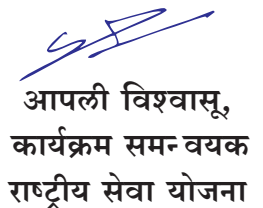 आपली विश्वासू,
कार्यक्रम समन्वयक
राष्ट्रीय सेवा योजना